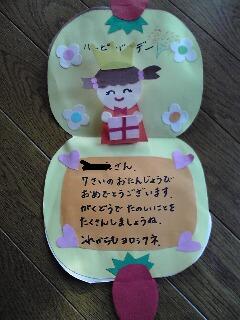 ハッピーバースデー
さん、
7さいのおたんじょうび
おめでとうございます。
がくどうで たのしいことを
たくさんしましょうね。
これからもヨロシクネ。